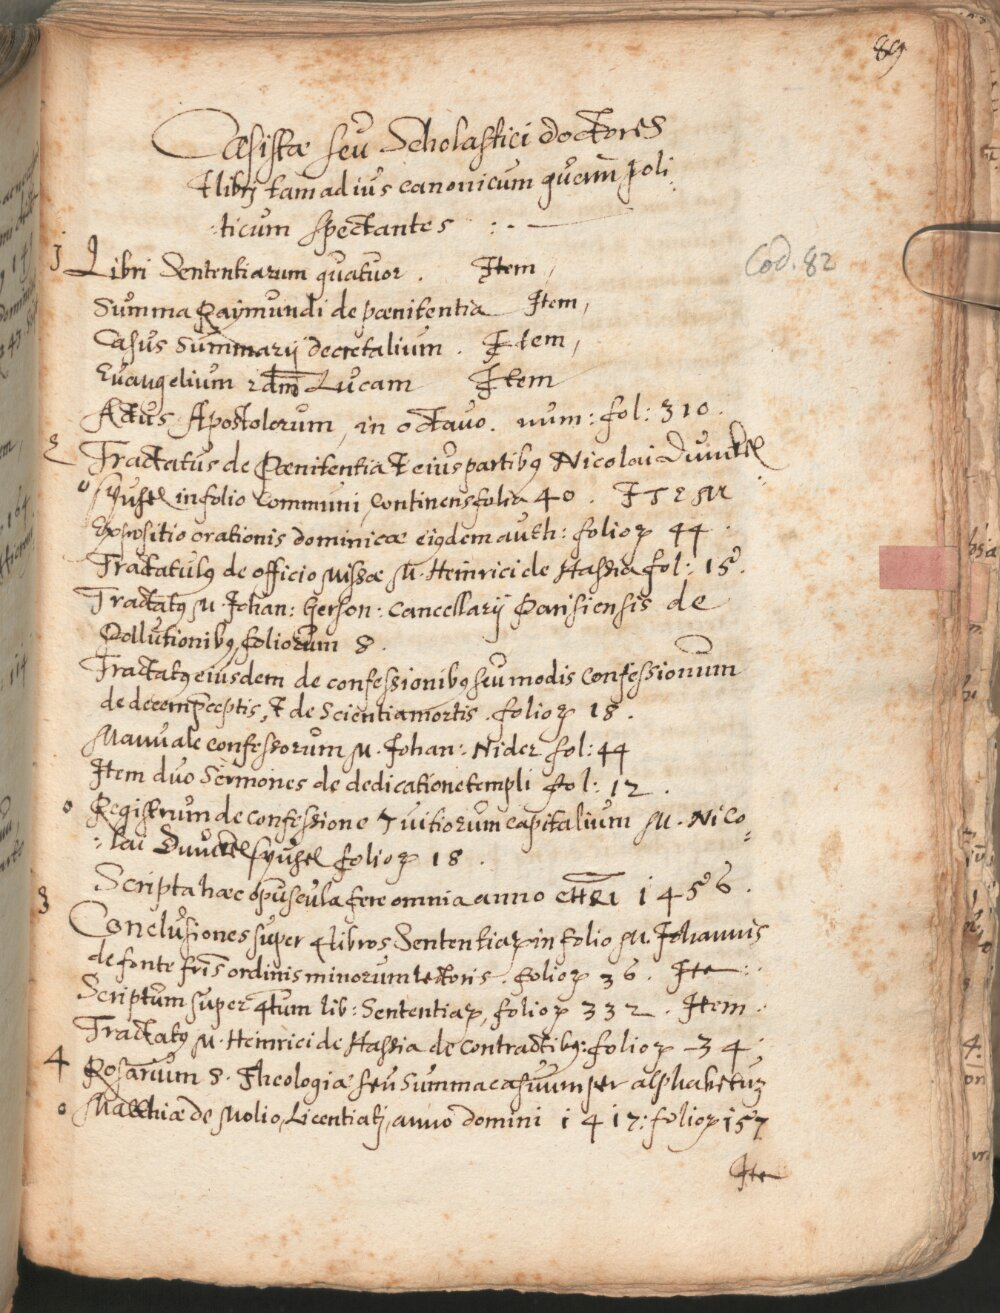 89
Casistæ seu Scholastici doctores
& libri tam ad ius canonicum quam poli
ticum spectantes :-
Cod. 82
1 Libri Sententiarum quatuor. Item,
Summa Raymundi de pœnitentia Item,
Casus Summarij decretalium. Item,
Evangelium sdm Lucam Item
Actus Apostolorum, in octavo. num: fol: 310.
2 Tractatus de Pœnitentia & eius partibus Nicolai
in folio communi, continens folia 40. ITEM
Expositio orationis dominicæ eiusdem auth: folioꝝ 44.
Tractatulus de officio missæ M. Heinrici de Hassia fol: 15.
Tractatus M. Johan: Gerson: Cancellarij Parisiensis de
Pollutionibus, foliorum 8.
Tractatus eiusdem de confessionibus seu modis Confessionum
de decem pceptis, & de Scientia mortis. folioꝝ 18.
Manuale confessorum M. Johan: Nider fol: 44
Item duo Sermones de dedicatione templi fol: 12.
Registrum de confessione 7 vitiorum capitalium M. Nico
lai folioꝝ 18.
Scripta hæc opuscula fere omnia anno 1456.
3 Conclusiones super 4 libros Sententiaꝝ in folio M. Johannis
de fonte fris ordinis minorum lectoris. folioꝝ 36. Ite:
Scriptum super 4tum lib: Sententiaꝝ, folioꝝ 332. Item.
Tractatus M. Heinrici de Hassia de Contractibus: folioꝝ 34;
4 Rosarium S. Theologiæ seu Summa casuum per alphabetum
Matthiæ de Molio, Licentiati, anno domini 1417: folioꝝ 157
Ite